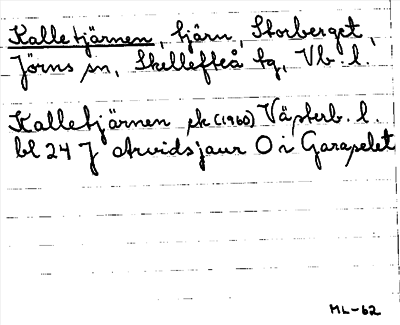 Kalletjärnen, tjärn, Storberget,
Jörns sn, Skellefteå tg, Vb. l.
Kalletjärnen ek (1960) Västerb. l.
bl 24 J Arvidsjaur O i Garapelet
ML-62